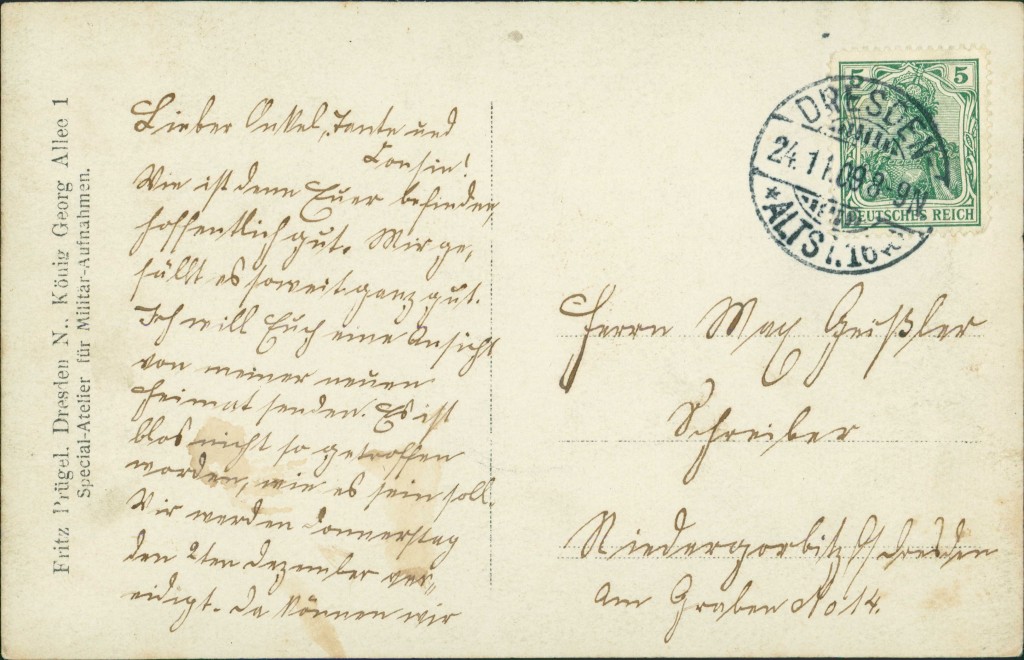 Fritz Prügel, Dresden N., König Georg Allee 1
Special-Atelier für Militär-Aufnahmen.
Lieber Onkel, Tante und
Cousin!
Wie ist denn Euer befinden,
hoffentlich gut. Mir ge,
fällt es soweit ganz gut.
Ich will Euch eine Ansicht
von meiner neuen
Heimat senden. Es ist
blos nicht so getroffen
worden, wie es sein soll.
Wir werden Donnerstag
den 2ten Dezember ver=
eidigt. Da können wir
5 5
DEUTSCHES REICH
DRESDEN-
24.11.09 8-9N
*ALTST.16
Herrn Max Geißler
Schreiber
Niedergorbitz b/ Dresden
Am Graben No 14.